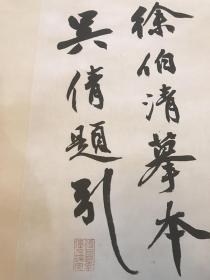 徐伯清摹本
吴倩題引